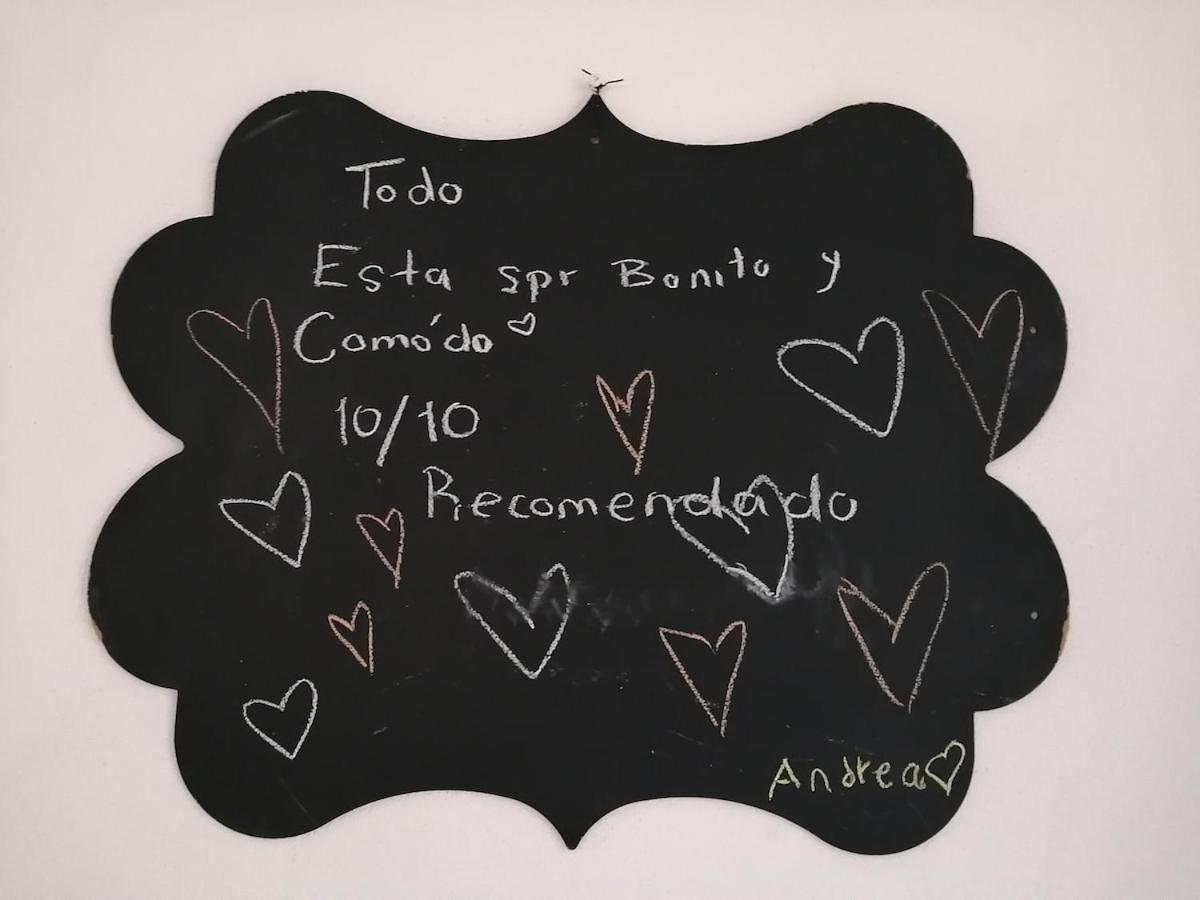 Todo
Esta spr Bonito y
Comódo
10/10
Recomendado
Andrea